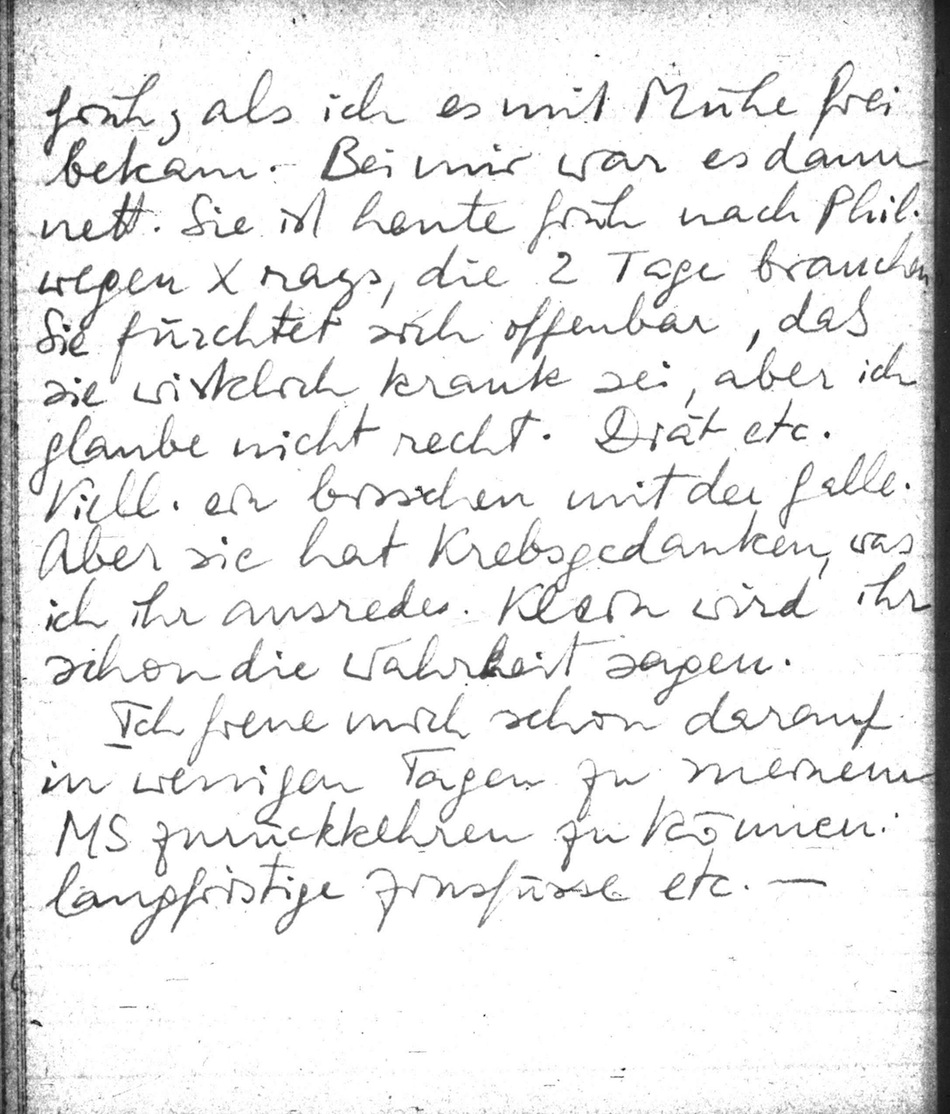 früh, als ich es mit Mühe frei
bekam. - Bei mir war es dann
nett. Sie ist heute früh nach Phil.
wegen X rays, die 2 Tage brauchen
Sie fürchtet sich offenbar, daß
sie wirklich krank sei, aber ich
glaube nicht recht. Diät etc.
Viell. ein bisschen mit der Galle.
Aber sie hat Krebsgedanken, was
ich ihr ausredes. Klein wird ihr
schon die Wahrheit sagen.
Ich freue mich schon darauf
in wenigen Tagen zu meinem
MS zurückkehren zu können:
langfristige Zinsfüsse etc. —